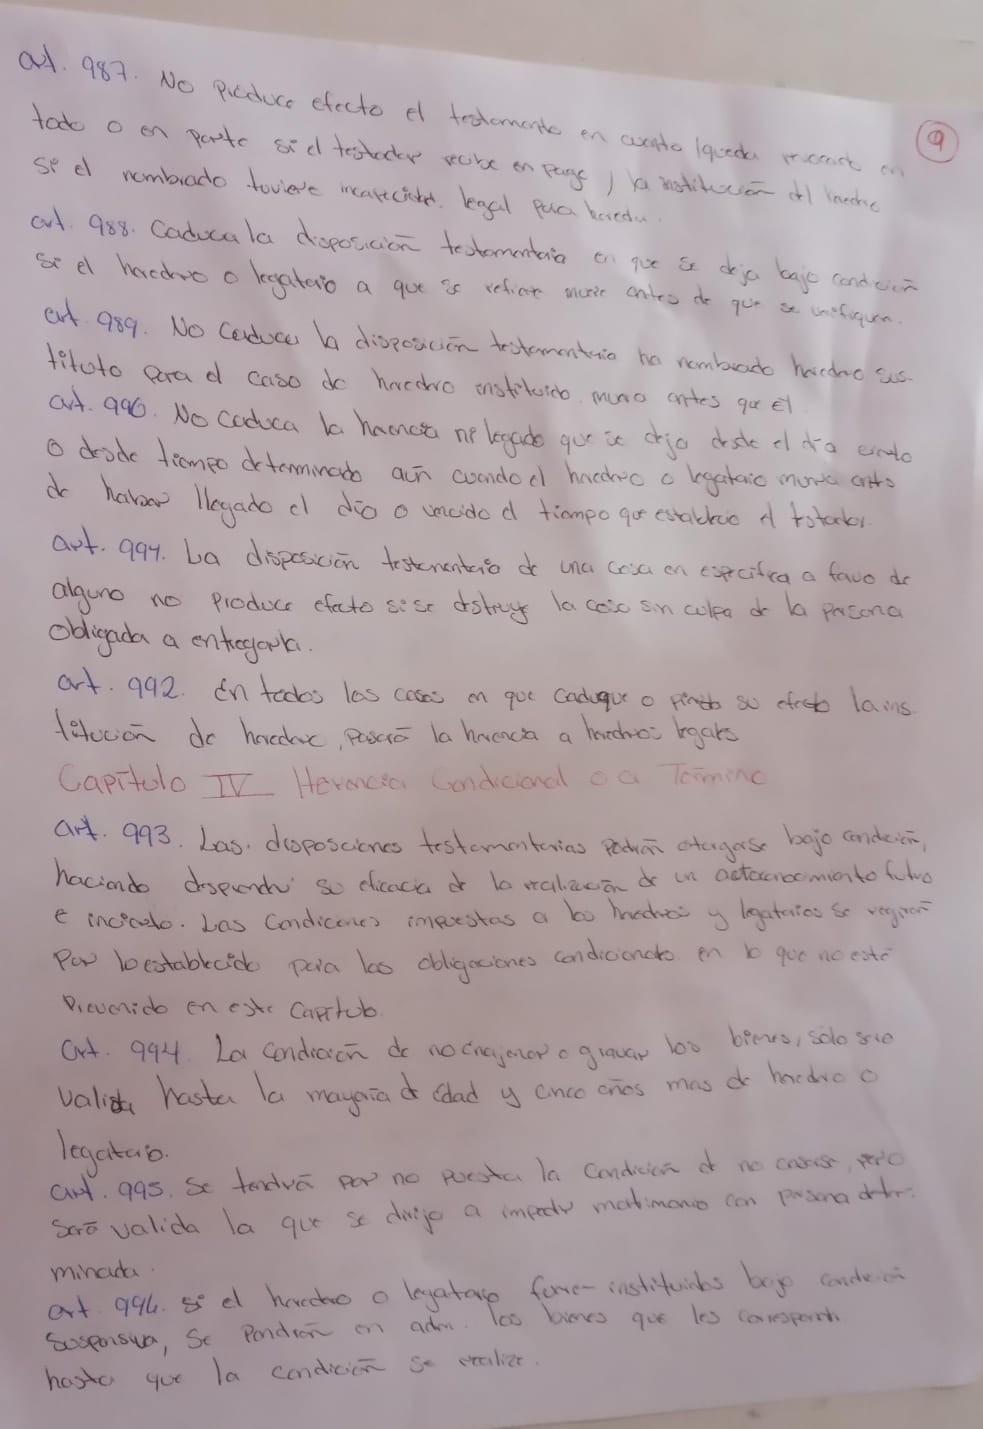 art. 987. No produce efecto el testamento en cuanto (queda en
9
todo o en parte si el testador recibe en pago) la institución del heredero
si el nombrado tuviere incapacidad. legal para heredar.
art. 988. Caduca la disposición testamentaria en que se deja bajo condición
si el heredero o legatario a que se refiere muere antes de que se verifiquen.
art. 989. No caduca la disposición testamentaria ha nombrado heredero sus-
tituto para el caso de heredero instituido, muera antes que él.
art. 990. No caduca la herencia ni legado que se deja desde el día cierto
o desde tiempo determinado aún cuando el heredero o legatario muera antes
de haber llegado el día o vencido el tiempo que estableció el testador.
art. 991. La disposición testamentaria de una cosa en específica a favor de
alguno no produce efecto si se destruye la cosa sin culpa de la persona
obligada a entregarla.
art. 992. En todos los casos en que caduque o pierda su efecto la ins-
titución de heredero, pasará la herencia a herederos legales
Capítulo IV Herencia Condicional o a Término
art. 993. Las disposiciones testamentarias podrán otorgarse bajo condición,
haciendo depender su eficacia de la realización de un acontecimiento futuro
e incierto. Las condiciones impuestas a los herederos y legatarios se regirán
por lo establecido para las obligaciones condicionales en lo que no esté
Prevenido en este Capítulo.
art. 994. La condición de no enajenar o gravar los bienes, sólo será
valida hasta la mayoría de edad y cinco años mas de heredero o
legatario.
art. 995. Se tendrá por no puesta la condición de no casarse, pero
será valida la que se dirija a impedir matrimonio con persona deter-
minada.
art. 996. si el heredero o legatario fueren instituidos bajo condición
suspensiva, se pondrán en adm. los bienes que les corresponda
hasta que la condición se realize.